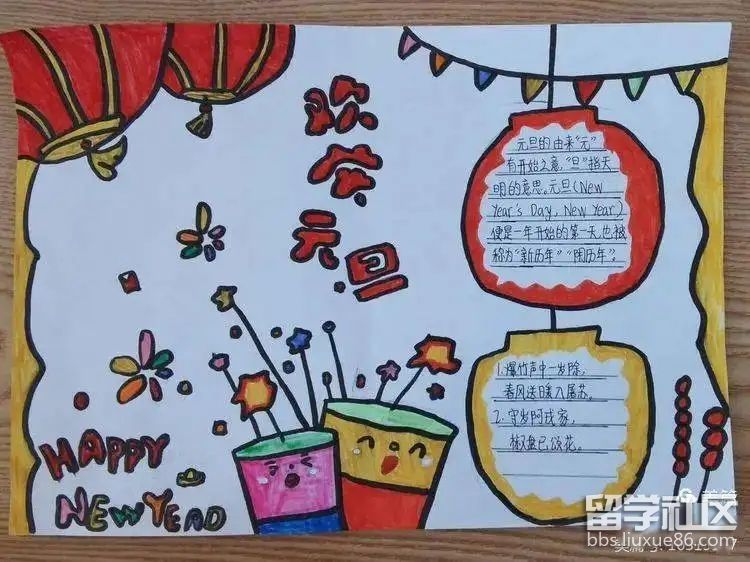 欢度
元旦
元旦的由来"元"
有开始之意,"旦"指天
明的意思。元旦(New
Year's Day, New Year)
便是一年开始的第一天,也被
称为"新历年""阳历年"。
1. 爆竹声中一岁除,
春风送暖入屠苏。
2. 守岁阿戎家,
椒盘已颂花。
HAPPY
NEW YEAD
留学社区
bbs.liuxue86.com